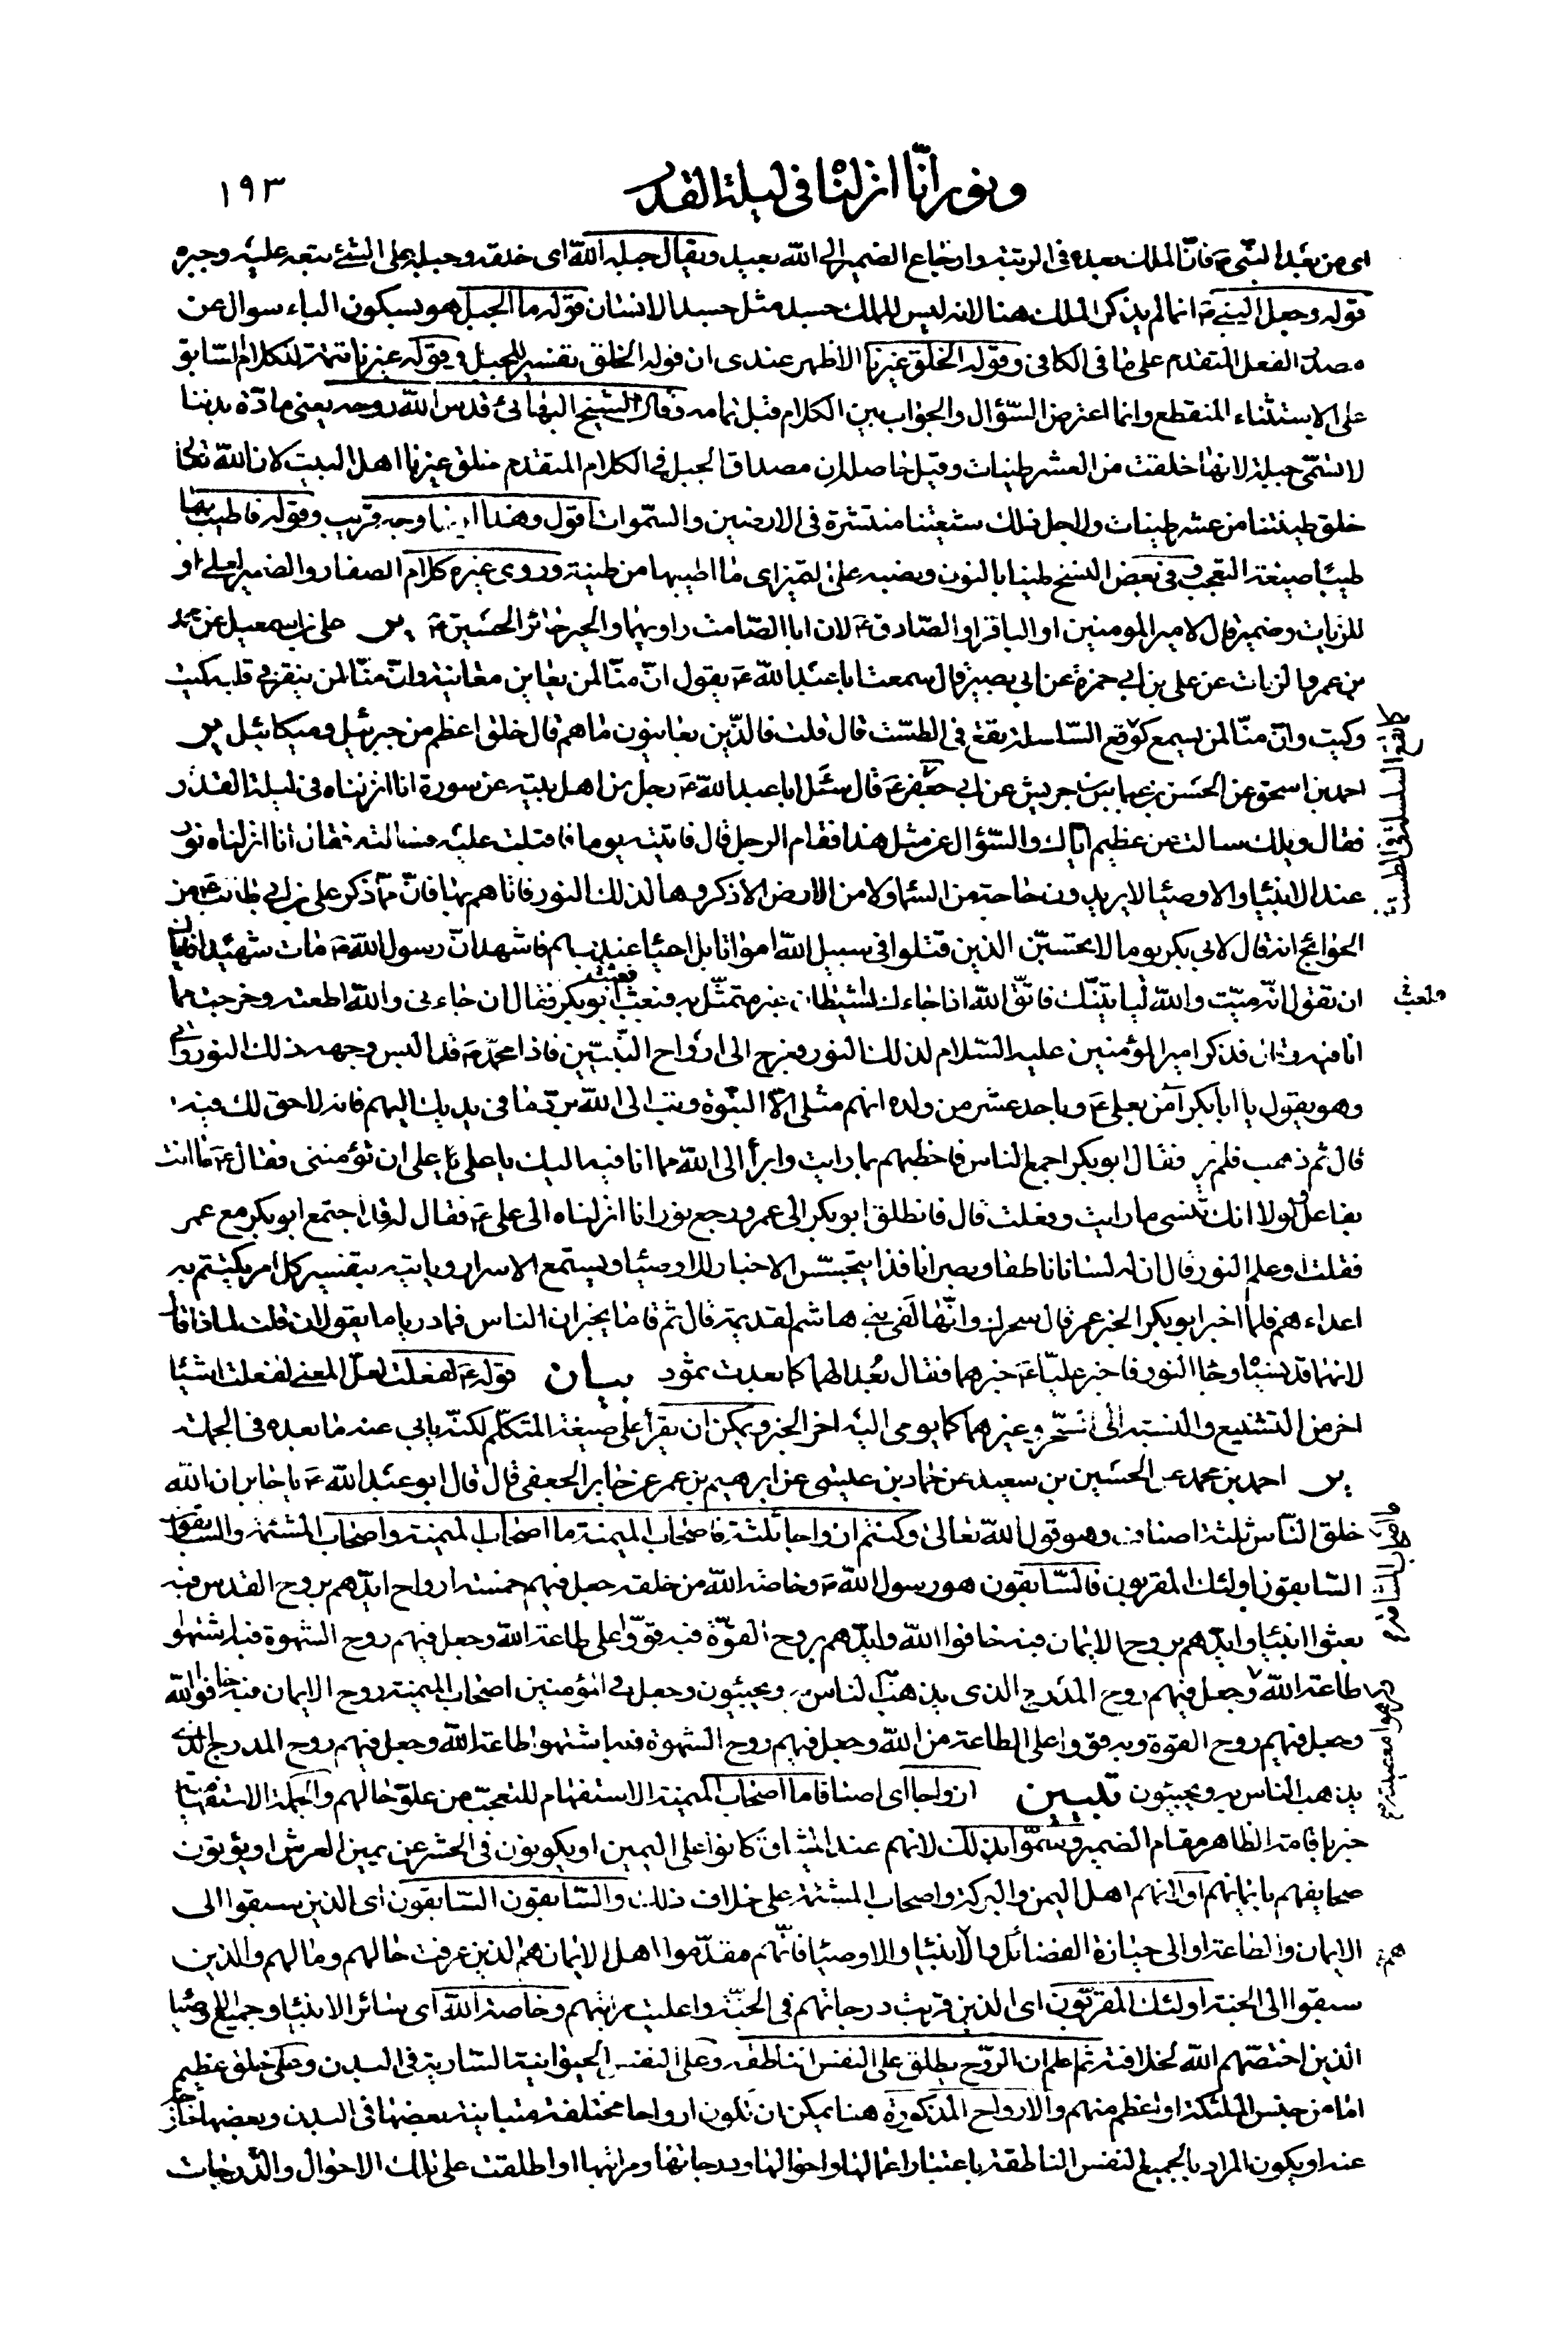 ونورانّا انزلنا فى ليلة القدر
١٩٣
اى من بعد النبىّ ص فانّ الملك بعده فى الرتبة وارجاع الضمير الى الله بعيد ويقال جبله الله اى خلقه وجبله على الشئ طبعه عليه وجبره
قوله وجعل النبى ص انما لم يذكر الملك هنا لانه ليس للملك جسد مثل جسد الانسان قوله ما الجبل هو بسكون الباء سوال عن
مصدر الفعل المتقدم على ما فى الكافى وقوله الخلق غيرنا الاظهر عندى ان قوله الخلق تفسير للجبل وقوله غيرنا تتمة للكلام السّابق
على الاستثناء المنقطع وانما اعترض السّؤال والجواب بين الكلام قبل تمامه وقال الشيخ البهائى قدس الله روحه يعنى مادّة بدننا
لا تسمّى جبلة لانها خلقت من العشر طينات وقيل حاصله ان مصداق الجبل فى الكلام المتقدم خلق غيرنا اهل البيت لان الله تعالى
خلق طينتنا من عشر طينات ولاجل ذلك شيعتنا منتشرة فى الارضين والسّموات اقول وهذا ايضا وجه قريب وقوله فاطيب بها
طيبا صيغة التعجب وفى بعض النسخ طينا بالنون ونصبه على التميز اى ما اطيبها من طينة وروى غيره كلام الصفار والضمير لعلى او
للزيات وضمير قال لامير المومنين او الباقر او الصّادق ع لان ابا الصّامت راويهما والحير حائر الحسين ع ير على بن اسمعيل عن محمد
بن عمرو الزيات عن على بن ابى حمزة عن ابى بصير قال سمعت ابا عبد الله ع يقول انّ منّا لمن يعاين معاينة وانّ منّا لمن ينقر فى قلبه كيت
وكيت وانّ منّا لمن يسمع كوقع السّلسلة يقع فى الطست قال قلت فالذّين يعاينون ما هم قال خلق اعظم من جبرئيل وميكائيل ير
احمد بن اسحق عن الحسن بن عباس بن جريش عن ابى جعفر ع قال سئل ابا عبد الله ع رجل من اهل بيته عن سورة انا انزلناه فى ليلة القدر
فقال ويلك سالت عن عظيم ايّاك والسّؤال عن مثل هذا فقام الرجل قال فاتيته يوما فاقبلت عليه فسالته فقال انا انزلناه نور
عند الانبيا والاوصيا لا يريدون حاجة من السّماء ولا من الارض الا ذكروها لذلك النور فاتاهم بها فانّ ممّا ذكر على بن ابى طالب ع من
الحوائج انه قال لابى بكر يوما لا تحسبنّ الذين قتلوا فى سبيل الله امواتا بل احياء عند ربهم فاشهد انّ رسول الله ص مات شهيدا فاياك
ان تقول انّه ميّت والله ليأتينّك فاتّق الله اذا جاءك الشيطان غير متمثّل به فبعث ابو بكر فقال ان جاءنى والله اطعته وخرجت مما
انا فيه قال فذكر امير المؤمنين عليه السّلام لذلك النور فعرج الى ارواح النّبيّين فاذا محمّد ص قد البس وجهه ذلك النور واتى
وهو يقول يا ابا بكر آمن بعلى ع وباحد عشر من ولده انهم مثلى الّا النبّوة وتب الى الله بردّ ما فى يديك اليهم فانه لا حق لك فيه
قال ثم ذهب فلم ير فقال ابو بكر اجمع الناس فاخطبهم بما رايت وابرأ الى الله مما انا فيه اليك يا على على ان تؤمننى فقال ع ما انت
بفاعل ولولا انك تنسى ما رايت لفعلت قال فانطلق ابو بكر الى عمر ورجع نور انا انزلناه الى على ع فقال له قد اجتمع ابو بكر مع عمر
فقلت او علم النور قال ان له لسانا ناطقا وبصرا نافذا يتجسّس الاخبار للاوصيا ويستمع الاسرار وياتيه بتفسير كل امر يكتتم به
اعداءهم فلما اخبر ابو بكر الخبر عمر قال سحرك وانّها لفى بنى هاشم لقديمة قال ثم قاما يخبران الناس فما دريا ما يقولان قلت لماذا قال
لانهما قد نسيا وجاء النور فاخبر عليّا ع خبرهما فقال بعدا لهما كما بعدت ثمود بيان قوله ع لفعلت لعلّ المعنى لفعلت اشيا
اخر من التشنيع والنسبة الى السّحر وغيرهما كما يومى اليه اخر الخبر ويمكن ان يقرأ على صيغة المتكلّم لكنّه يابى عنه ما بعده فى الجملة
ير احمد بن محمد عن الحسين بن سعيد عن حماد بن عيسى عن ابرهيم بن عمر عن جابر الجعفى قال قال ابو عبد الله ع يا جابر ان الله
خلق النّاس ثلثة اصناف وهو قول الله تعالى وكنتم ازواجا ثلثة فاصحاب الميمنة ما اصحاب الميمنة واصحاب المشئمة والسّابقون
السّابقون اولئك المقربون فالسّابقون هو رسول الله ص وخاصة الله من خلقه جعل فيهم خمسة ارواح ايّدهم بروح القدس فبه
بعثوا انبيا وايّدهم بروح الايمان فبه خافوا الله وايّدهم بروح القوّة فبه قووا على طاعة الله وجعل فيهم روح الشهوة فبه اشتهوا
طاعة الله وجعل فيهم روح المدرج الذى يذهب به الناس ويجيئون وجعل فى المؤمنين اصحاب الميمنة روح الايمان فبه خافوا الله
وجعل فيهم روح القوة وبه قووا على الطاعة من الله وجعل فيهم روح الشهوة فبه اشتهوا طاعة الله وجعل فيهم روح المدرج الذى
يذهب الناس به ويجيئون تبيين ازواجا اى اصنافا ما اصحاب الميمنة الاستفهام للتعجّب من علوّ حالهم والجملة الاستفهامية
خبر باقامة الظاهر مقام الضمير وسمّوا بذلك لانهم عند الميثاق كانوا على اليمين او يكونون فى الحشر عن يمين العرش او يؤتون
صحايفهم بايمانهم او لانهم اهل اليمن والبركة واصحاب المشئمة على خلاف ذلك والسّابقون السّابقون اى الذين سبقوا الى
الايمان والطاعة او الى حيازة الفضائل او الانبيا والاوصيا فانّهم مقدّموا اهل الايمان هم الذين عرفت حالهم ومالهم والذين
سبقوا الى الجنة اولئك المقرّبون اى الذين قربت درجاتهم فى الجنّة واعليت مراتبهم وخاصة الله اى سائر الانبيا وجميع الاوصيا
الذين اختصّهم الله لخلافته ثم اعلم ان الرّوح يطلق على النفس الناطقة وعلى النفس الحيوانية السّارية فى البدن وعلى خلق عظيم
امّا من جنس الملئكة او اعظم منهم والارواح المذكورة هنا يمكن ان تكون ارواحا مختلفة متباينة بعضها فى البدن وبعضها خارج
عنه او يكون المراد بالجميع النفس الناطقة باعتبار اعمالها واحوالها ودرجاتها ومراتبها او اطلقت على تلك الاحوال والدّرجات